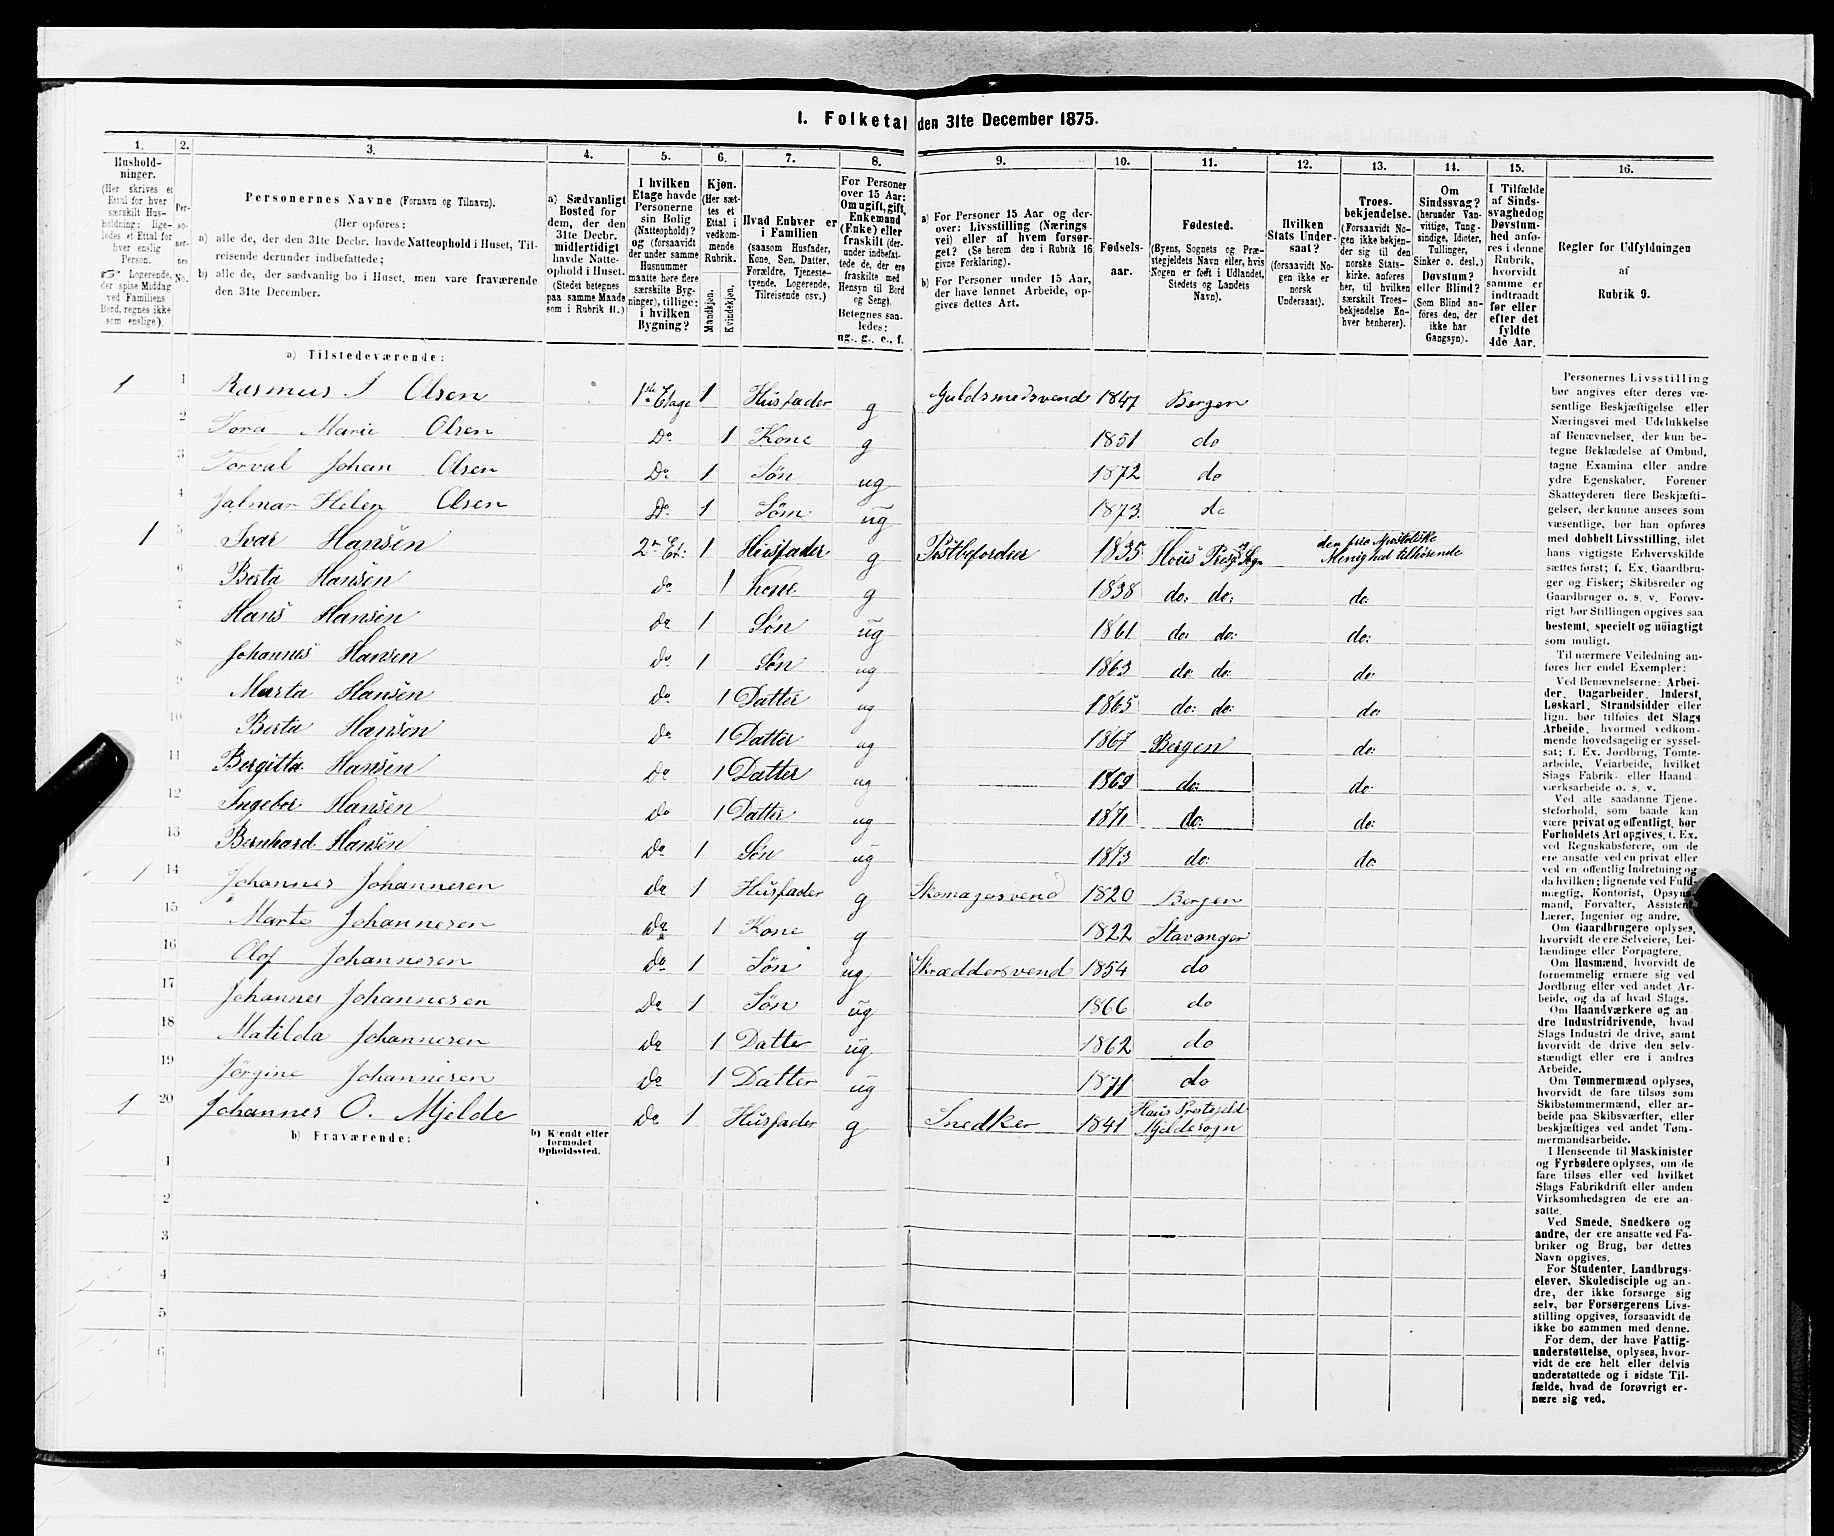 I. Folketal den 31te December 1875.
1. 2. 3. 4. 5. 6. 7. 8. 9. 10. 11. 12. 13. 14. 15. 16.
Hushold-
ninger.
(Her skrives et
Ettal for hver
særskilt Hus-
holdning; lige-
ledes et Ettal for
hver enslig
Person.
☞ Logerende,
der spise Middag
ved Familiens
Bord, regnes ikke
som enslige).
Per-
so-
ner-
nes
No.
Personernes Navne (Fornavn og Tilnavn).
(Her opføres:
a) alle de, der den 31te Decbr. havde Natteophold i Huset, Til-
reisende derunder indbefattede;
b) alle de, der sædvanlig bo i Huset, men vare fraværende
den 31te December.
a) Sædvanligt
Bosted for
dem, der den
31te Decbr.
midlertidigt
havde Natte-
ophold i Huset.
(Stedet betegnes
paa samme Maade
som i Rubrik 11.)
I hvilken
Etage havde
Personerne
sin Bolig
(Natteophold)?
og (forsaavidt
der under samme
Husnummer
maatte høre flere
særskilte Byg-
ninger), tillige:
i hvilken
Bygning?
Kjøn.
(Her sæt-
tes et
Ettal i
vedkom-
mende
Rubrik.
Mandkjøn.
Kvindekjøn.
Hvad Enhver er
i Familien
(saasom Husfader,
Kone, Søn, Datter,
Forældre, Tjeneste-
tyende, Logerende,
Tilreisende osv.)
For Personer
over 15 Aar:
Om ugift, gift,
Enkemand
(Enke) eller
fraskilt (der-
under indbefat-
tede de, der ere
fraskilte med
Hensyn til Bord
og Seng).
Betegnes saa-
ledes:
ug., g., e., f.
a) For Personer 15 Aar og der-
over: Livsstilling (Nærings
vei) eller af hvem forsør-
get? (Se herom den i Rubrik 16
givne Forklaring).
b) For Personer under 15 Aar,
der have lønnet Arbeide, op-
gives dettes Art.
Fødsels-
aar.
Fødested.
(Byens, Sognets og Præ-
stegjeldets Navn eller, hvis
Nogen er født i Udlandet,
Stedets og Landets
Navn).
Hvilken
Stats Under-
saat?
(forsaavidt No-
gen ikke er
norsk
Undersaat).
Troes-
bekjendelse.
(Forsaavidt No-
gen ikke bekjen-
der sig til den
norske Stats-
kirke, anføres
her, til hvilken
særskilt Troes-
bekjendelse En-
hver henhører).
Om
Sindssvag?
(herunder Van-
vittige, Tung-
sindige, Idioter,
Tullinger,
Sinker o. desl.)
Døvstum?
eller Blind?
(Som Blind an-
føres den, der
ikke har
Gangsyn).
I Tilfælde
af Sinds-
svaghed og
Døvstum-
hed anfø-
res i denne
Rubrik,
hvorvidt
samme er
indtraadt
før eller
efter det
fyldte
4de Aar.
Regler for Udfyldningen
af
Rubrik 9.
a) Tilstedeværende:
1 1 Rasmus J Olsen 1ste Etage 1 Husfader g Guldsmedsvend 1847 Bergen
2 Tora Marie Olsen Do 1 Kone g 1851 do
3 Torval Johan Olsen Do 1 Søn ug 1872 do
4 Jalmar Helen Olsen Do 1 Søn ug 1873 do
1 5 Ivar Hansen 2n Et: 1 Husfader g Postbefordrer 1835 Hous Presg og Sogn den frie Apostoliske Menighed tilhørende
6 Berta Hansen do 1 Kone g 1838 do: do: do:
7 Hans Hansen do 1 Søn ug 1861 do: do: do:
8 Johannes Hansen Do 1 Søn ug 1863 do do: do:
9 Marta Hansen Do 1 Datter ug 1865 do: do: do:
10 Berta Hansen do 1 Datter ug 1867 Bergen do:
11 Bergitta Hansen Do 1 Datter ug 1869 do: do:
12 Ingebor Hansen Do 1 Datter ug 1871 do: do:
13 Bernhard Hansen Do 1 Søn ug 1873 do: do:
1 14 Johannes Johannesen Do 1 Husfader g Skomagersvend 1820 Bergen
15 Marte Johannesen Do 1 Kone g 1822 Stavanger
16 Olof Johannesen Do 1 Søn ug Skræddersvend 1854 do
17 Johannes Johannesen Do 1 Søn ug 1866 do
18 Matilda Johannesen Do 1 Datter ug 1862 do
19 Jørgine Johannesen Do 1 Datter ug 1871 do
1 20 Johannes O. Mjelde Do 1 Husfader g Snedker 1841 Haus Prestegjeld Mjeldesogn
b) Fraværende:
b) Kjendt eller
formodet
Opholdssted.
1
2
3
4
5
6
Personernes Livsstilling
bør angives efter deres væ-
sentlige Beskjæftigelse eller
Næringsvei med Udelukkelse
af Benævnelser, der kun be-
tegne Beklædelse af Ombud,
tagne Examina eller andre
ydre Egenskaber. Forener
Skatteyderen flere Beskjæfti-
gelser, der kunne ansees som
væsentlige, bør han opføres
med dobbelt Livsstilling, idet
hans vigtigste Erhvervskilde
sættes først; f. Ex. Gaardbru-
ger og Fisker; Skibsreder og
Gaardbruger o. s. v. Forøv-
rigt bør Stillingen opgives saa
bestemt, specielt og nöiagtigt
som muligt.
Til nærmere Veiledning an-
føres her endel Exempler:
Ved Benævnelserne: Arbei-
der, Dagarbeider, Inderst,
Løskarl, Strandsidder eller
lign. bør tilføies det Slags
Arbeide, hvormed vedkom-
mende hovedsagelig er syssel-
sat; f. Ex. Jordbrug, Tomte-
arbeide, Veiarbeide, hvilket
Slags Fabrik- eller Haand-
værksarbeide o. s. v.
Ved alle saadanne Tjene-
steforhold, som baade kan
være privat og offentligt, bør
Forholdets Art opgives, t. Ex.
ved Regnskabsførere, om de
ere ansatte ved en privat eller
ved en offentlig Indretning og
da hvilken; lignende ved Fuld-
mægtig, Kontorist, Opsyns-
mand, Forvalter, Assistent,
Lærer, Ingeniør og andre.
Om Gaardbrugere oplyses,
hvorvidt de ere Selveiere, Lei-
lændinge eller Forpagtere.
Om Husmænd, hvorvidt de
fornemmelig ernære sig ved
Jordbrug eller ved andet Ar-
beide, og da af hvad Slags.
Om Haandværkere og an-
dre Industridrivende, hvad
Slags Industri de drive, samt
hvorvidt de drive den selv-
stændigt eller ere i andres
Arbeide.
Om Tømmermænd oplyses,
hvorvidt de fare tilsøs som
Skibstømmermænd, eller ar-
beide paa Skibsværfter, eller
beskjæftiges ved andet Tøm-
mermandsarbeide.
I Henseende til Maskinister
og Fyrbødere oplyses, om de
fare tilsøs eller ved hvilket
Slags Fabrikdrift eller anden
Virksomhedsgren de ere an-
satte.
Ved Smede, Snedkere og
andre, der ere ansatte ved Fa-
briker og Brug, bør dettes
Navn opgives.
For Studenter, Landbrugs-
elever, Skoledisciple og an-
dre, der ikke forsørge sig
selv, bør Forsørgerens Livs-
stilling opgives, forsaavidt de
ikke bo sammen med denne.
For dem, der have Fattig-
understøttelse, oplyses, hvor-
vidt de ere helt eller delvis
understøttede og i sidste Til-
fælde, hvad de forøvrigt er-
nære sig ved.